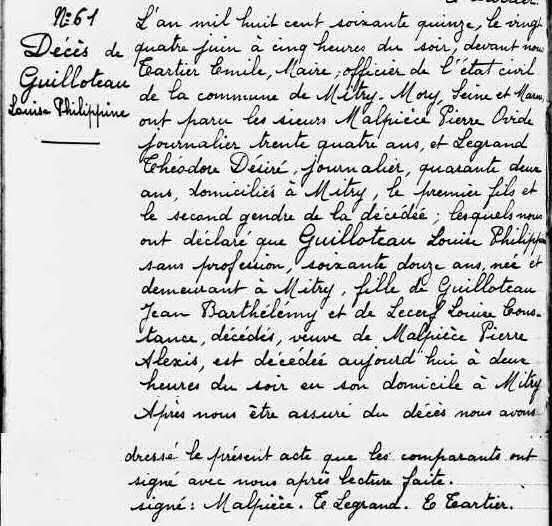 N° 61
Décès de
Guilloteau
Louise Philippine
L'an mil huit cent soixante quinze, le vingt
quatre juin à cinq heures du soir, devant nous
Tartier Emile, Maire, officier de l'état civil
de la commune de Mitry-Mory, Seine et Marne,
ont paru les sieurs Malpièce Pierre Ovide
journalier trente quatre ans, et Legrand
Théodore Désiré, journalier, quarante deux
ans, domiciliés à Mitry, le premier fils et
le second gendre de la décédée; lesquels nous
ont déclaré que Guilloteau Louise Philippine
sans profession, soixante douze ans, née et
demeurant à Mitry, fille de Guilloteau
Jean Barthélémy et de Lecerf Louise Cons-
tance, décédés, veuve de Malpièce Pierre
Alexis, est décédée aujourd'hui à deux
heures du soir en son domicile à Mitry
Après nous être assuré du décès nous avons
dressé le présent acte que les comparants ont
signé avec nous après lecture faite.
signé: Malpièce. T Legrand. E Tartier.